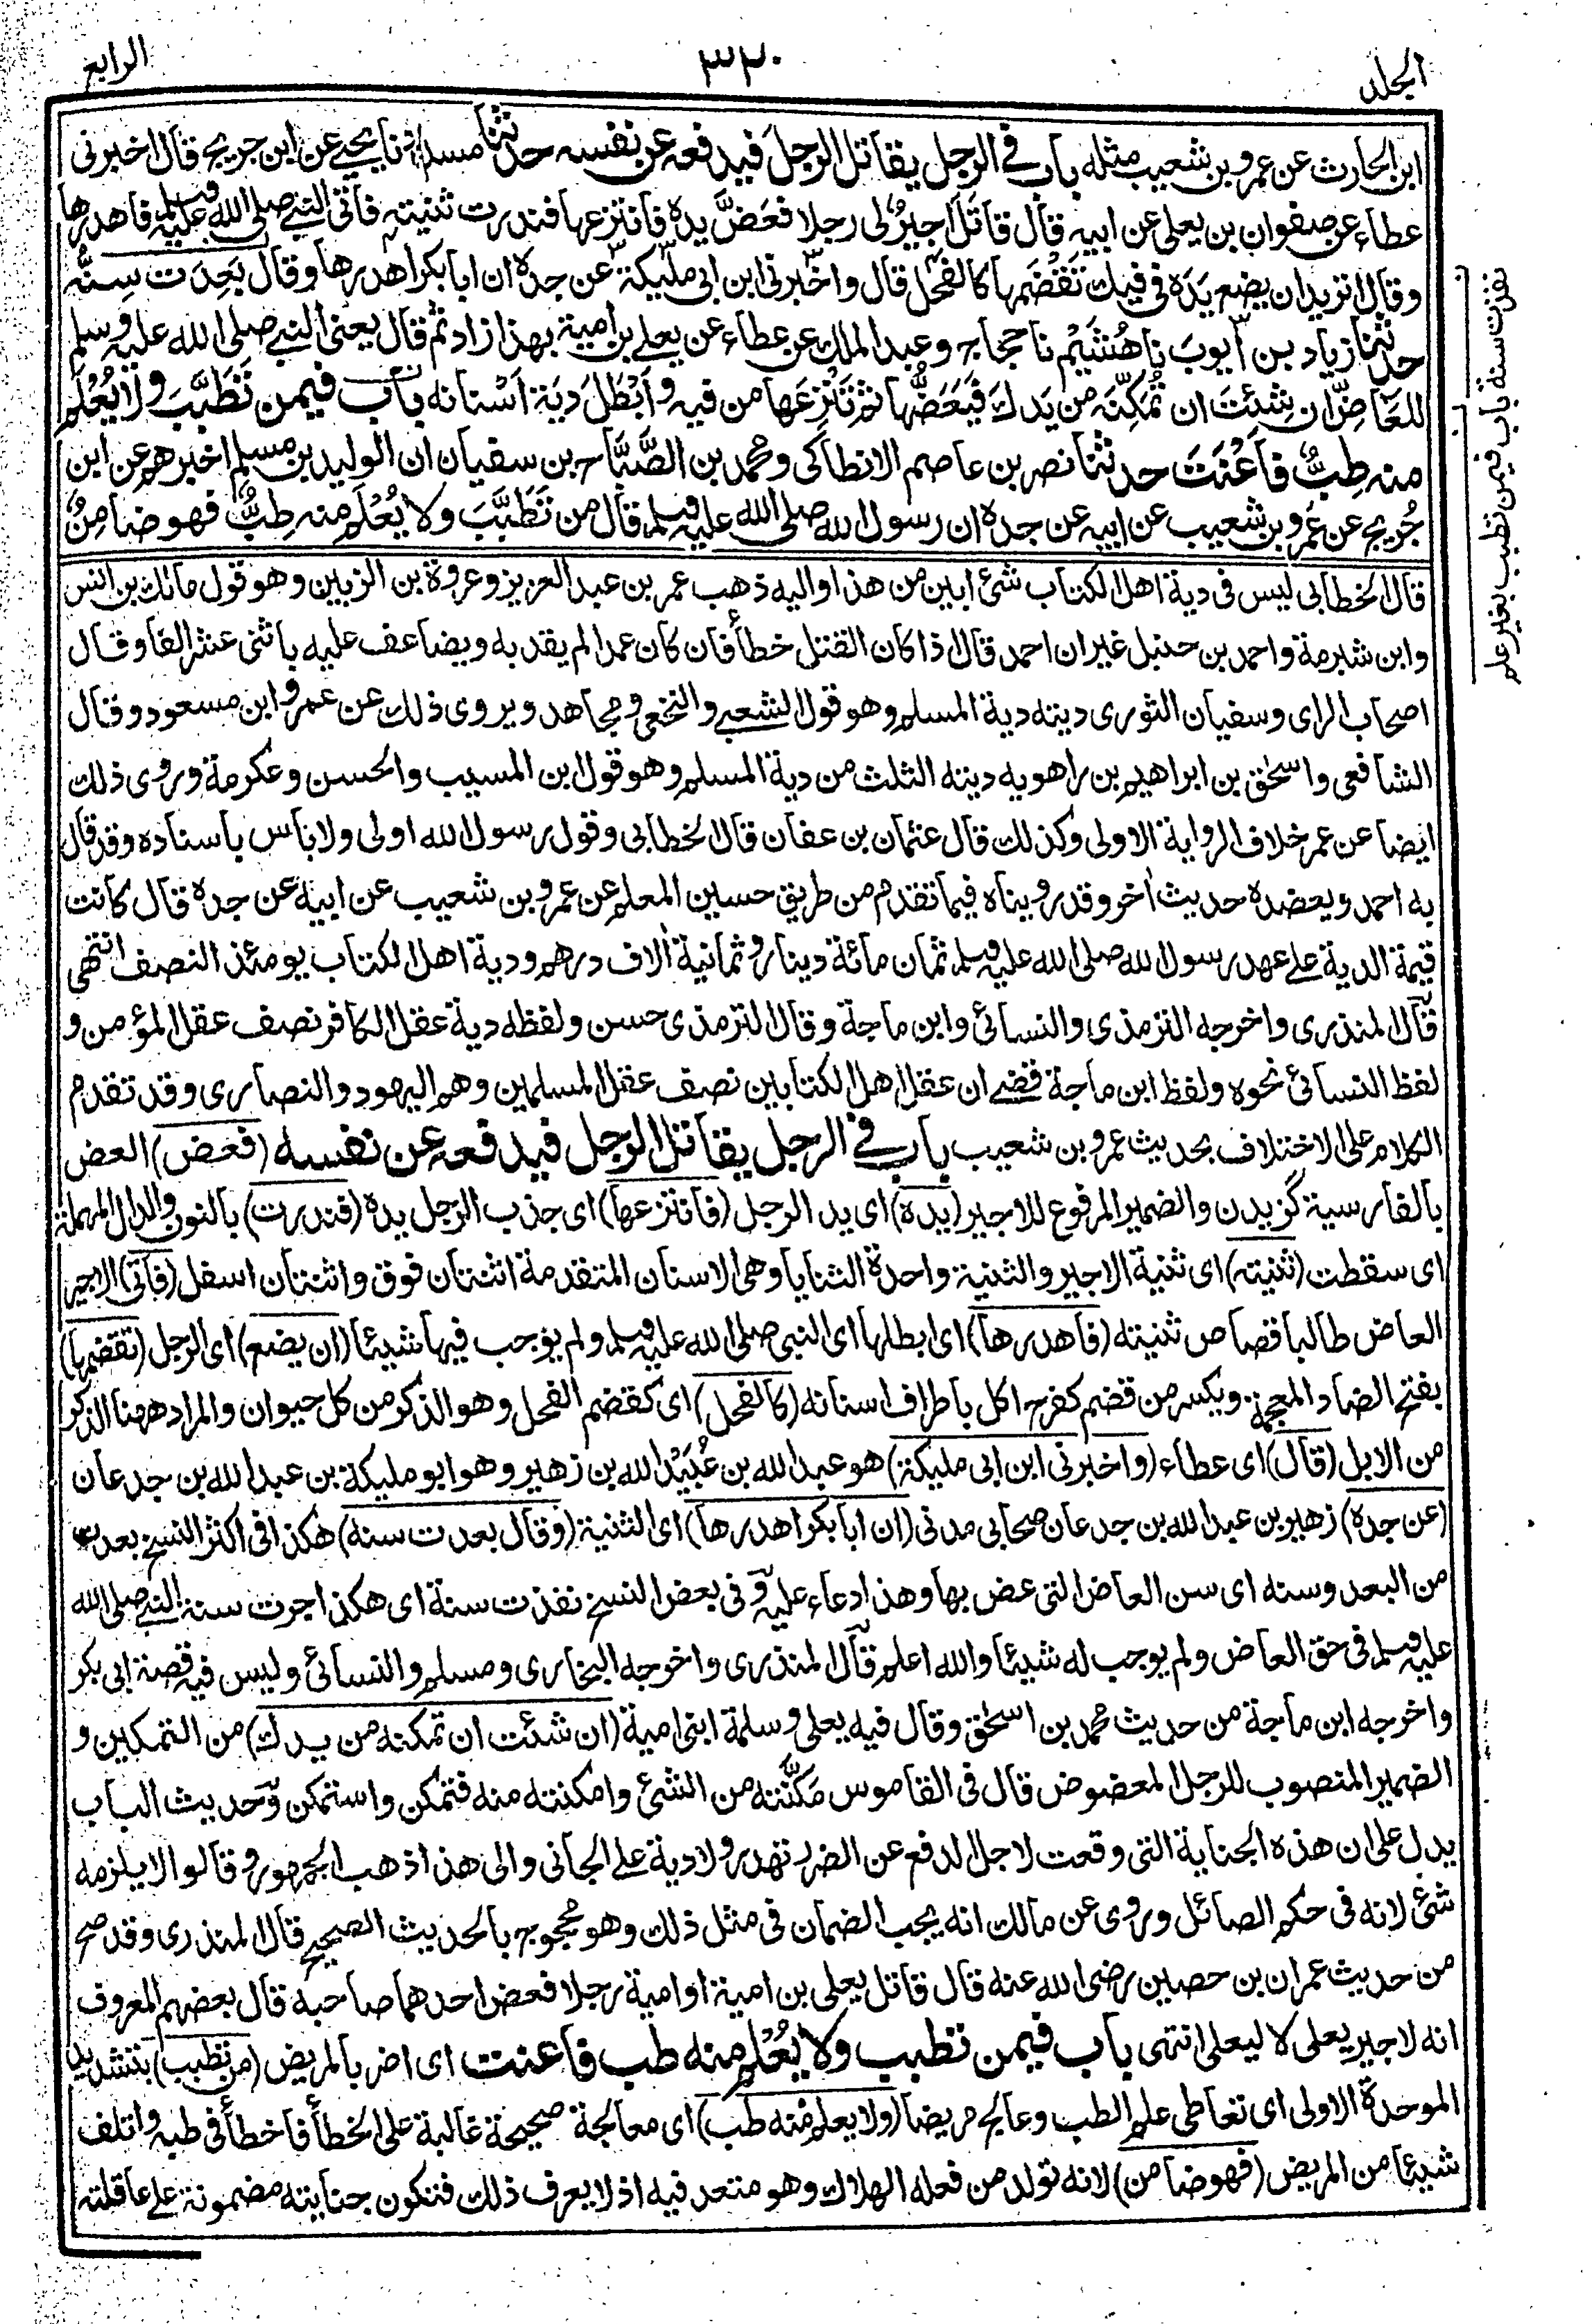 الجلد
٣٢٠
الرابع
ابن الحارث عن عمرو بن شعيب مثله باب في الرجل يقاتل الرجل فيدفعه عن نفسه حدثنا مسدد نا يحيى عن ابن جريج قال اخبرني
عطاء عن صفوان بن يعلى عن ابيه قال قاتل اجير لى رجلا فعض يده فانتزعها فندرت ثنيته فاتى النبي صلى الله عليه وسلم فاهدرها
وقال اتريد ان يضع يده فى فيك تقضمها كالفحل قال واخبرنى ابن ابى مليكة عن جده ان ابا بكر اهدرها وقال بعدت سنه
حدثنا زياد بن ايوب نا هشيم نا حجاج وعبد الملك عن عطاء عن يعلى بن امية بهذا زاد ثم قال يعنى النبي صلى الله عليه وسلم
للعاض ان شئت ان تمكنه من يدك فيعضها ثم تنزعها من فيه وابطل دية اسنانه باب فيمن تطبب ولا يعلم
منه طب فاعنت حدثنا نصر بن عاصم الانطاكى ومحمد بن الصباح بن سفيان ان الوليد بن مسلم اخبرهم عن ابن
جريج عن عمرو بن شعيب عن ابيه عن جده ان رسول الله صلى الله عليه وسلم قال من تطبب ولا يعلم منه طب فهو ضامن
نفذت سنة باب فيمن تطبب بغير علم
قال الخطابى ليس فى دية اهل الكتاب شئ ابين من هذا واليه ذهب عمر بن عبد العزيز وعروة بن الزبير وهو قول مالك بن انس
وابن شبرمة واحمد بن حنبل غير ان احمد قال اذا كان القتل خطأ فان كان عمدا لم يقد به ويضاعف عليه باثنى عشر الفا وقال
اصحاب الراى وسفيان الثورى ديته دية المسلم وهو قول الشعبي والنخعى ومجاهد ويروى ذلك عن عمر وابن مسعود وقال
الشافعى واسحق بن ابراهيم بن راهويه ديته الثلث من دية المسلم وهو قول ابن المسيب والحسن وعكرمة وروى ذلك
ايضا عن عمر خلاف الرواية الاولى وكذلك قال عثمان بن عفان قال الخطابى وقول رسول الله اولى ولا باس باسناده وقد قال
به احمد ويعضده حديث اخر وقد رويناه فيما تقدم من طريق حسين المعلم عن عمرو بن شعيب عن ابيه عن جده قال كانت
قيمة الدية على عهد رسول الله صلى الله عليه وسلم ثمان مائة دينار وثمانية الاف درهم ودية اهل الكتاب يومئذ النصف انتهى
قال المنذرى واخرجه الترمذى والنسائى وابن ماجة وقال الترمذى حسن ولفظه دية عقل الكافر نصف عقل المؤمن و
لفظ النسائى نحوه ولفظ ابن ماجة قضى ان عقل اهل الكتابين نصف عقل المسلمين وهم اليهود والنصارى وقد تقدم
الكلام على الاختلاف بحديث عمرو بن شعيب باب في الرجل يقاتل الرجل فيدفعه عن نفسه (فعض) العض
بالفارسية گزيدن والضمير المرفوع للاجير (يده) اى يد الرجل (فانتزعها) اى جذب الرجل يده (فندرت) بالنون والدال المهملة
اى سقطت (ثنيته) اى ثنية الاجير والثنية واحدة الثنايا وهى الاسنان المتقدمة اثنتان فوق واثنتان اسفل (فاتى) الاجير
العاض طالبا قصاص ثنيته (فاهدرها) اى ابطلها اى النبى صلى الله عليه وسلم ولم يوجب فيها شيئا (ان يضع) اى الرجل (تقضمها)
بفتح الضاد المعجمة ويكسر من قضم كفرح اكل باطراف اسنانه (كالفحل) اى كقضم الفحل وهو الذكر من كل حيوان والمراد ههنا الذكر
من الابل (قال) اى عطاء (واخبرنى ابن ابى مليكة) هو عبد الله بن عبيد الله بن زهير وهو ابو مليكة بن عبد الله بن جدعان
(عن جده) زهير بن عبد الله بن جدعان صحابى مدنى (ان ابا بكر اهدرها) اى الثنية (وقال بعدت سنه) هكذا فى اكثر النسخ بعدت
من البعد وسنه اى سن العاض التى عض بها وهذا دعاء عليه وفى بعض النسخ نفذت سنة اى هكذا جرت سنة النبي صلى الله
عليه وسلم فى حق العاض ولم يوجب له شيئا والله اعلم قال المنذرى واخرجه البخارى ومسلم والنسائى وليس فيه قصة ابى بكر
واخرجه ابن ماجة من حديث محمد بن اسحق وقال فيه يعلى وسلمة ابنى امية (ان شئت ان تمكنه من يدك) من التمكين و
الضمير المنصوب للرجل المعضوض قال فى القاموس مكنته من الشئ وامكنته منه فتمكن واستمكن وحديث الباب
يدل على ان هذه الجناية التى وقعت لاجل الدفع عن الضرر تهدر ولا دية على الجانى والى هذا ذهب الجمهور وقالوا لا يلزمه
شئ لانه فى حكم الصائل وروى عن مالك انه يجب الضمان فى مثل ذلك وهو محجوج بالحديث الصحيح قال المنذرى وقد صح
من حديث عمران بن حصين رضى الله عنه قال قاتل يعلى بن امية او امية رجلا فعض احدهما صاحبه قال بعضهم المعروف
انه لاجير يعلى لا ليعلى انتهى باب فيمن تطبب ولا يعلم منه طب فاعنت اى اضر بالمريض (من تطبب) بتشديد
الموحدة الاولى اى تعاطى علم الطب وعالج مريضا (ولا يعلم منه طب) اى معالجة صحيحة غالبة على الخطأ فاخطأ فى طبه واتلف
شيئا من المريض (فهو ضامن) لانه تولد من فعله الهلاك وهو متعد فيه اذ لا يعرف ذلك فتكون جنايته مضمونة على عاقلته